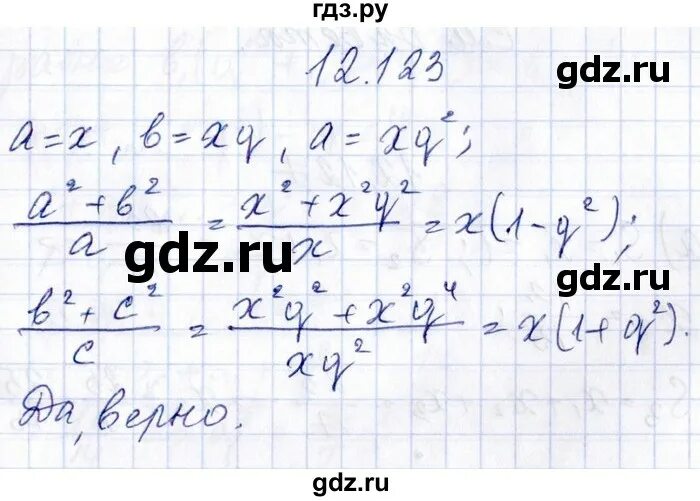 гдз.ру
12.123
gdz.ru
a=x, b=xq, a=xq²;
(a²+b²)/a = (x²+x²q²)/x = x(1-q²);
gdz.ru
gdz.ru
(b²+c²)/c = (x²q²+x²q⁴)/(xq²) = x(1+q²).
Да, верно.
gdz.ru